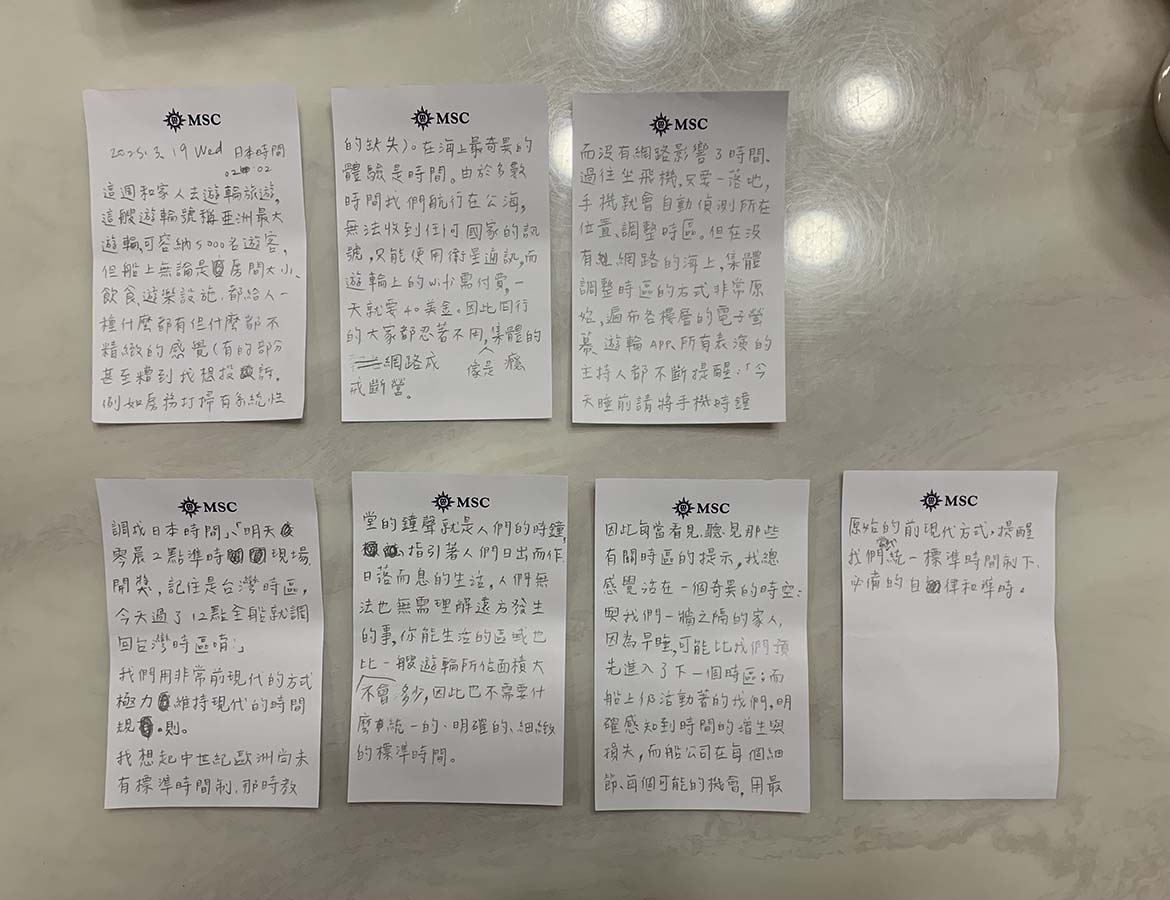 MSC
2025.3.19 Wed 日本時間
02:02
這週和家人去遊輪旅遊,
這艘遊輪號稱亞洲最大
遊輪,可容納5000名遊客,
但船上無論是房間大小、
飲食、遊樂設施,都給人一
種什麼都有但什麼都不
精緻的感覺(有的部分
甚至糟到我想投訴,
例如房務打掃有系統性
MSC
的缺失)。在海上最奇異的
體驗是時間。由於多數
時間我們航行在公海,
無法收到任何國家的訊
號,只能使用衛星通訊,而
遊輪上的wifi需付費,一
天就要40美金。因此同行
的大家都忍著不用,集體的
像是網路成癮
戒斷營。
MSC
而沒有網路影響了時間、
過往坐飛機,只要一落地,
手機就會自動偵測所在
位置、調整時區。但在沒
有網路的海上,集體
調整時區的方式非常原
始,遍布各樓層的電子螢
幕、遊輪APP、所有表演的
主持人都不斷提醒:「今
天睡前請將手機時鐘
MSC
調成日本時間」、「明天
零晨2點準時現場
開獎,記住是台灣時區,
今天過了12點全船就調
回台灣時區唷!」
我們用非常前現代的方式
極力維持現代的時間
規則。
我想起中世紀歐洲尚未
有標準時間制,那時教
MSC
堂的鐘聲就是人們的時鐘,
指引著人們日出而作
日落而息的生活,人們無
法也無需理解遠方發生
的事,你能生活的區域也
不會比一艘遊輪所佔面積大
多少,因此也不需要什
麼統一的、明確的、細緻
的標準時間。
MSC
因此每當看見、聽見那些
有關時區的提示,我總
感覺站在一個奇異的時空:
與我們一牆之隔的家人,
因為早睡,可能比我們預
先進入了下一個時區;而
船上仍活動著的我們,明
確感知到時間的增生與
損失,而船公司在每個細
節、每個可能的機會,用最
MSC
原始的前現代方式,提醒
我們統一標準時間制下,
必備的自律和準時。